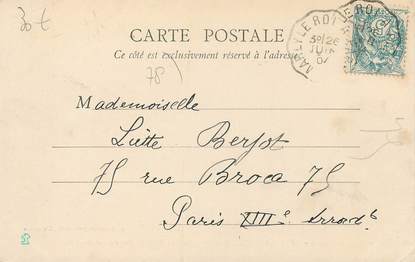 30 €
CARTE POSTALE
Ce côté est exclusivement réservé à l'adresse
MARLY LE ROI
3E/26
JUIL
78
Mademoiselle
Liette Berjot
75 rue Broca 75
Paris XIIIe Arrondt